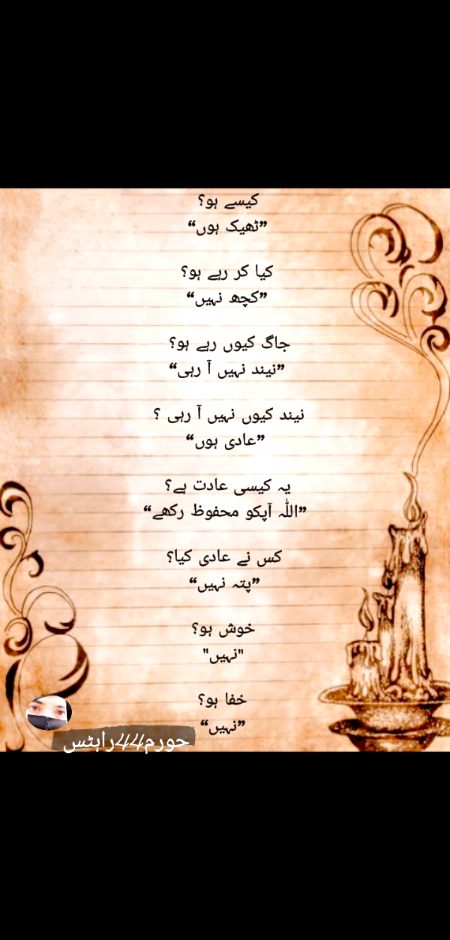 کیسے ہو؟
”ٹھیک ہوں“
کیا کر رہے ہو؟
”کچھ نہیں“
جاگ کیوں رہے ہو؟
”نیند نہیں آ رہی“
نیند کیوں نہیں آ رہی ؟
”عادی ہوں“
یہ کیسی عادت ہے؟
”اللّٰہ آپکو محفوظ رکھے“
کس نے عادی کیا؟
”پتہ نہیں“
خوش ہو؟
"نہیں"
خفا ہو؟
”نہیں“
حورم44رائٹس